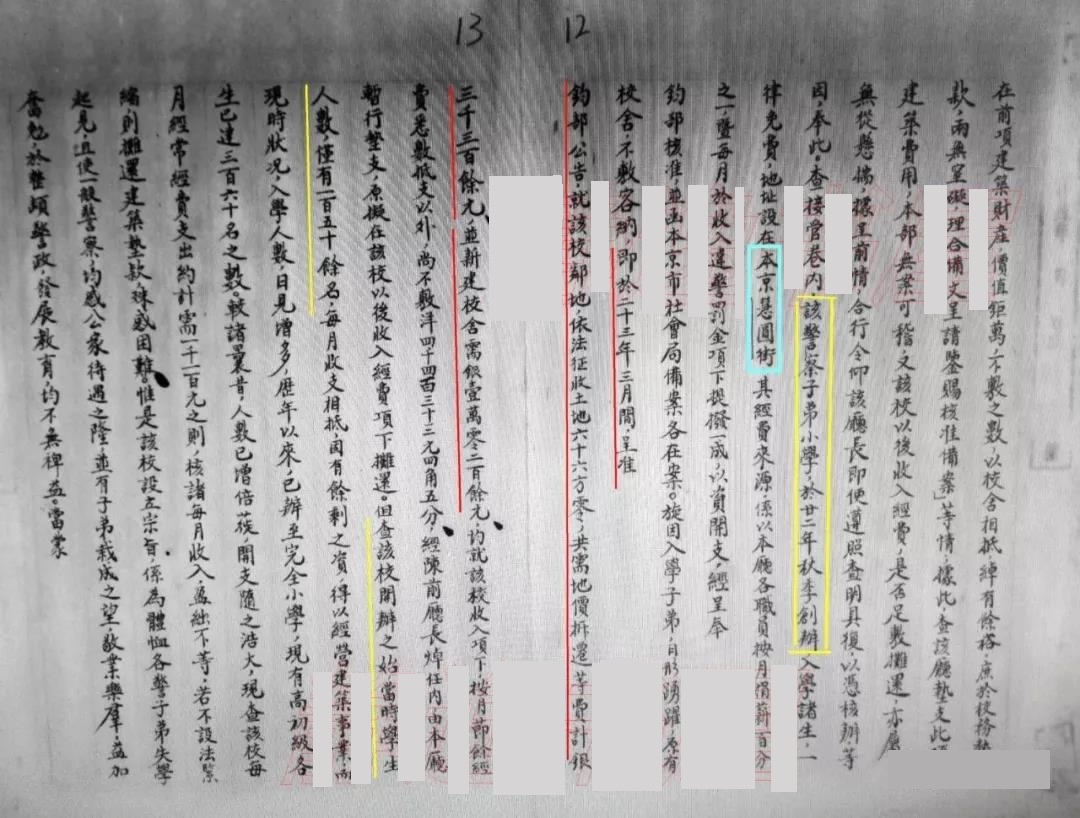 13
12
在前項建築財産價值鉅萬不敷之數以校舍相抵綽有餘裕庶於校務墊
款兩無窒礙理合備文呈請鑒賜核准備案」等情據此查該廳墊支此項
建築費用本部無案可稽又該校以後收入經費是否足敷攤還亦屬
無從懸揣據呈前情合行令仰該廳長即使遵照查明具復以憑核辦等
因奉此查接管卷內該警察子弟小學於廿二年秋季創辦入學諸生一
律免費地址設在本京慧圓街其經費來源係以本廳各職員按月捐薪百分
之一暨每月於收入違警罰金項下提撥一成以資開支經呈奉
鈞部核准並函本京市社會局備案各在案旋因入學子弟自形踴躍原有
校舍不敷容納即於二十三年三月間呈准
鈞部公告就該校鄰地依法征收土地六十六方零共需地價拆遷等費計銀
三千三百餘元並新建校舍需銀壹萬零二百餘元均就該校收入項下按月節餘經
費悉數抵支以外尚不敷洋四千四百三十三元四角五分經陳前廳長焯任內由本廳
暫行墊支原擬在該校以後收入經費項下攤還但查該校開辦之始當時學生
人數僅有一百五十餘名每月收支相抵固有餘剩之資得以經營建築事業而
現時狀況入學人數日見增多歷年以來已辦至完全小學現有高初級各
生已達三百六十名之數較諸曩昔人數已增倍蓰開支隨之浩大現查該校每
月經常經費支出約計需一千一百元之則核諸每月收入盈絀不等若不設法緊
縮則攤還建築墊款殊感困難惟是該校設立宗旨係為體恤各警子弟失學
起見並使一般警察均感公家待遇之隆並有子弟栽成之望敬業樂群益加
奮勉於整頓警政發展教育均不無裨益當蒙